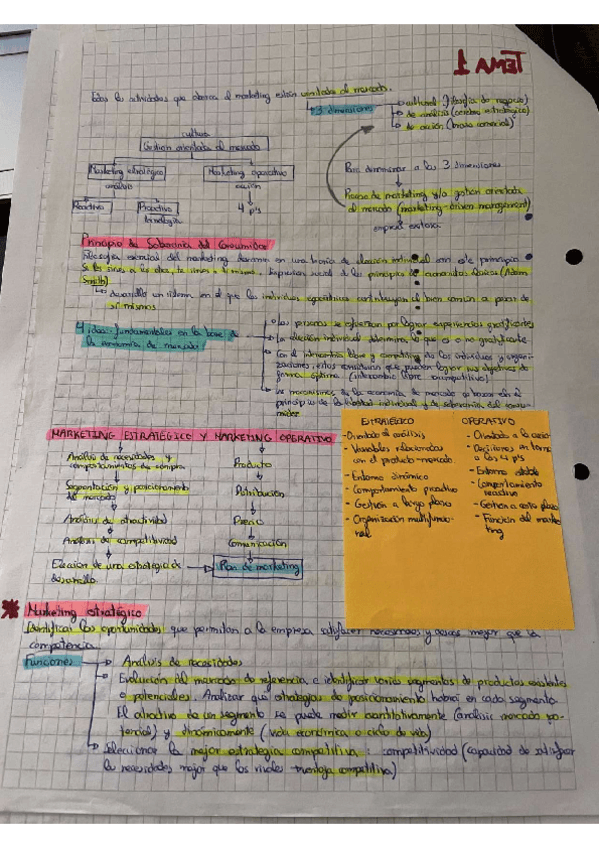 TEMA 1
Todas las actividades que abarca el marketing están orientadas al mercado.
3 dimensiones
cultural (filosofía de negocio)
de análisis (cerebro estratégico)
de acción (brazo comercial)
cultura
Gestión orientada al mercado
Marketing estratégico
análisis
Marketing operativo
acción
Reactivo
Proactivo
tecnología
4 p's
Para denominar a las 3 dimensiones
Proceso de marketing y/o gestión orientada
al mercado (marketing-driven management)
Principio de Soberanía del Consumidor
Filosofía esencial del marketing descansa en una teoría de elección individual con este principio
Smith)
desarrollo un sistema en el que los individuos egocéntricos contribuyan al bien común a pesar de
sí mismos
4 ideas fundamentales en la base de
la economía de mercado
Las personas se esfuerzan por lograr experiencias gratificantes
La elección individual determina lo que es o no gratificante
Con el intercambio libre y competitivo de los individuos y organi-
zaciones, estos consideran que pueden lograr sus objetivos de
forma óptima (intercambio libre competitivo)
los mecanismos de la economía de mercado se basan en el
principio de la libertad individual y de soberanía del consu-
midor
MARKETING ESTRATÉGICO Y MARKETING OPERATIVO
Análisis de necesidades y
comportamientos de compra
Segmentación y posicionamiento
del mercado
Análisis de atractividad
Análisis de competitividad
Elección de una estrategia de
desarrollo
Producto
Distribución
Precio
Comunicación
Plan de marketing
ESTRATÉGICO
- Orientado al análisis
- Variables relacionadas
con el producto-mercado
- Entorno dinámico
- Comportamiento proactivo
- Gestión a largo plazo
- Organización multifuncio-
nal
OPERATIVO
- Orientado a la acción
- Decisiones en torno
a las 4 p's
- Entorno estable
- Comportamiento
reactivo
- Gestión a corto plazo
- Función del marke-
ting
Marketing estratégico
Identificar las oportunidades que permitan a la empresa satisfacer necesidades y deseos mejor que la
competencia
Funciones
Análisis de necesidades
Evolución del mercado de referencia e identificar varios segmentos de productos existentes
o potenciales. Analizar qué estrategias de posicionamiento habrá en cada segmento
El atractivo de un segmento se puede medir cuantitativamente (análisis mercado po-
tencial) y dinámicamente (vida económica o ciclo de vida)
Seleccionar la mejor estrategia competitiva : competitividad (capacidad de satisfacer
las necesidades mejor que los rivales → ventaja competitiva)